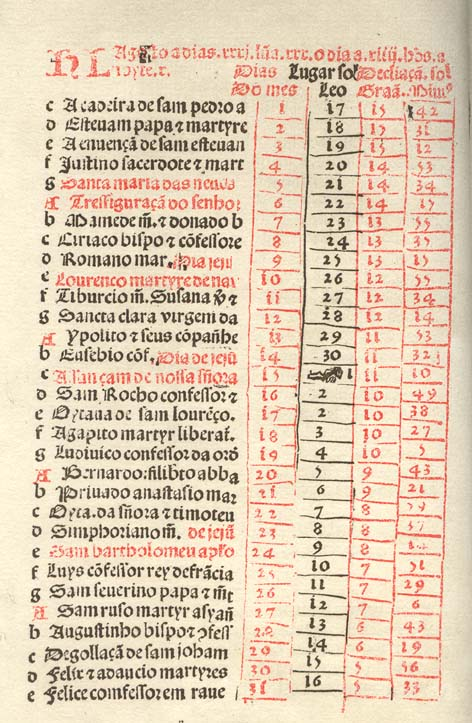 Agosto a dias. xxxj. lũa. xxx. o dia a. xiiij. hõs. a
Dias Lugar sol Decliaçã. sol
Do mes Leo Graã. Minu
c A cadeira de sam pedro a 1 17 15 42
d Esteuam papa ⁊ martyre 2 18 15 31
e A enuençã de sam esteuan 3 19 15 12
f Justino sacerdote ⁊ mart 4 20 14 53
g Santa maria das neues 5 21 14 34
A Tressiguraçã do senhor 6 22 14 15
b Mamede m̃. ⁊ donado b 7 23 13 55
c Ciriaco bispo ⁊ cõfessore 8 24 13 35
d Romano mar. Dia jeju 9 25 13 15
e Lourenco martyre de 10 26 12 55
f Tiburcio m̃. Susana ⁊ 11 27 12 34
g Sancta clara virgem da 12 28 12 14
A Ypolito ⁊ seus cõpañhe 13 29 11 53
b Eusebio cõf. Dia de jejũ 14 30 11 32
c A sançam de nossa sñora 15 1 11 10
d Sam Rocho confessor ⁊ 16 2 10 49
e Oytaua de sam lourẽço. 17 2 10 38
f Agapito martyr liberat. 18 3 10 27
g Luduuico confessor da orõ 19 4 10 5
A Bernardo: filibto abba 20 5 9 43
b Priuado anastasio mar 21 6 9 21
c Oyta. da sñora ⁊ timoteu 22 7 8
d Simphoriano m̃. de jejũ 23 8 8 37
e Sam bartholomeu apło 24 9 8
f Luys cõfessor rey de frãcia 25 10 7 51
g Sam seuerino papa ⁊ m̃t 26 11 7 29
A Sam rufo martyr asyañ 27 12 7 6
b Augustinho bispo ⁊ cõfess 28 13 6 43
c Degollaçã de sam joham 29 14 6 19
d Felix ⁊ adaucio martyres 30 15 5 56
e Felice comfessor em raue 31 16 5 33